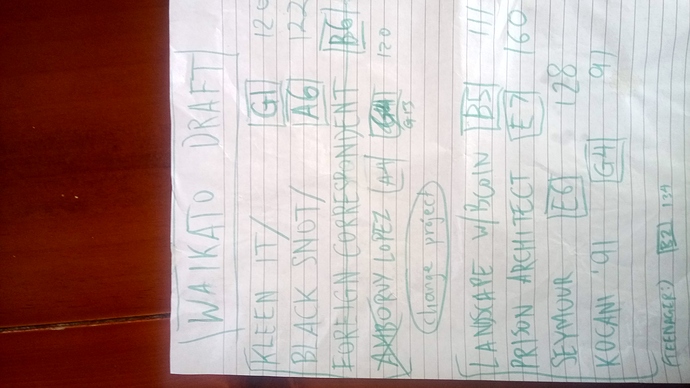 WAIKATO DRAFT
KLEEN IT/ G1 120
BLACK SNOT/ A6 122
FOREIGN CORRESPONDENT B6
LOPEZ A4 120
change project
LANDSCAPE W/BCOIN B5 111
PRISON ARCHITECT E7 160
SEYMOUR E6 128
KOGANI '91 G4 97
(TEENAGER:) B2 134